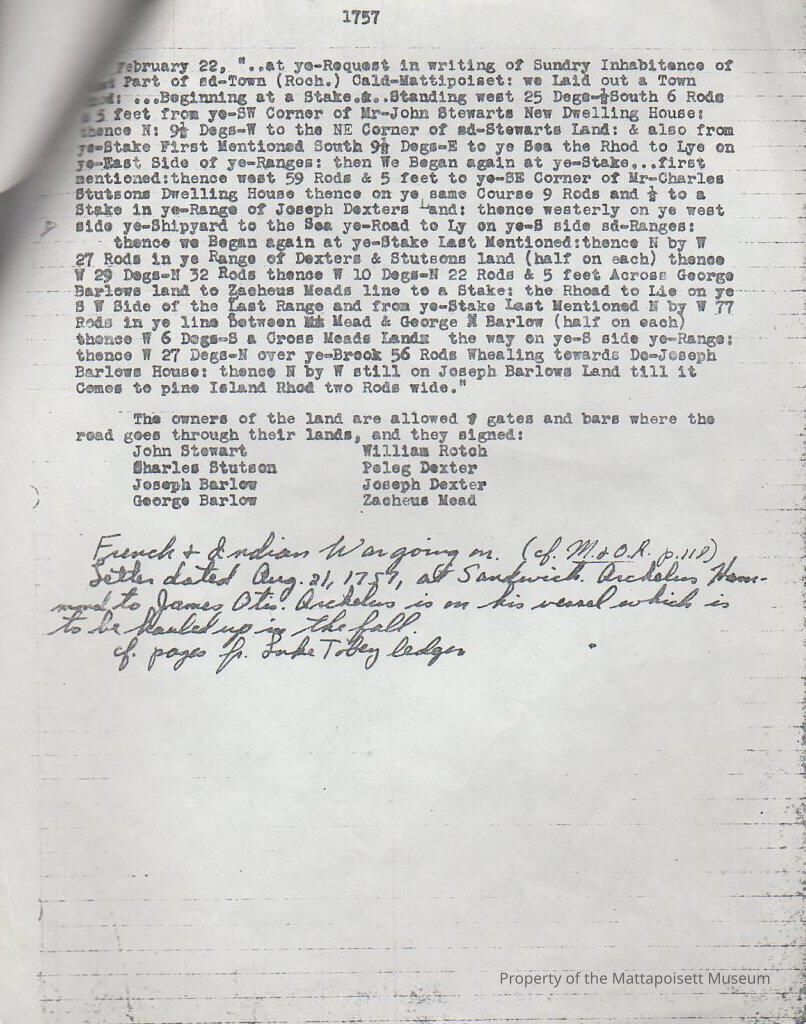 1757
February 22, "..at ye-Request in writing of Sundry Inhabitence of
Part of sd-Town (Roch.) Cald-Mattipoiset: we Laid out a Town
: ...Beginning at a Stake.&..Standing west 25 Degs-½South 6 Rods
& 5 feet from ye-SW Corner of Mr-John Stewarts New Dwelling House:
thence N: 9½ Degs-W to the NE Corner of sd-Stewarts Land: & also from
ye-Stake First Mentioned South 9½ Degs-E to ye Sea the Rhod to Lye on
ye-East Side of ye-Ranges: then We Began again at ye-Stake...first
mentioned:thence west 59 Rods & 5 feet to ye-SE Corner of Mr-Charles
Stutsons Dwelling House thence on ye same Course 9 Rods and ½ to a
Stake in ye-Range of Joseph Dexters Land: thence westerly on ye west
side ye-Shipyard to the Sea ye-Road to Ly on ye-S side sd-Ranges:
thence we Began again at ye-Stake Last Mentioned:thence N by W
27 Rods in ye Range of Dexters & Stutsons land (half on each) thence
W 29 Degs-N 32 Rods thence W 10 Degs-N 22 Rods & 5 feet Across George
Barlows land to Zacheus Meads line to a Stake: the Rhoad to Lie on ye
S W Side of the Last Range and from ye-Stake Last Mentioned N by W 77
Rods in ye line between Mead & George Barlow (half on each)
thence W 6 Degs-S a Cross Meads Land the way on ye-S side ye-Range:
thence W 27 Degs-N over ye-Brook 56 Rods Whealing towards De-Joseph
Barlows House: thence N by W still on Joseph Barlows Land till it
Comes to pine Island Rhod two Rods wide."
The owners of the land are allowed gates and bars where the
road goes through their lands, and they signed:
John Stewart William Rotch
Sharles Stutson Peleg Dexter
Joseph Barlow Joseph Dexter
George Barlow Zacheus Mead
French & Indian War going on. (cf. M. & O.R. p.118)
Letter dated Aug. 21, 1757, at Sandwich. Archelus Ham-
mond to James Otis. Archelus is on his vessel which is
to be hauled up in the fall.
cf. pages fr. Luke Tobey ledger
Property of the Mattapoisett Museum